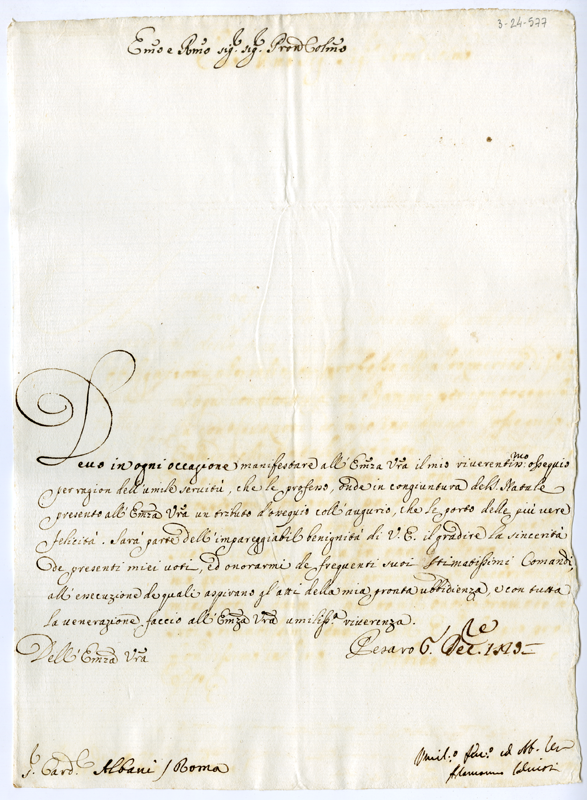 3-24-577
Emo e Rmo sig.r sig.r Pron Colmo
Devo in ogni occazione manifestare all' Emza Vra il mio riverentinmo ossequio
per ragion dell' umile servitù, che le professo, onde in congiuntura del S. Natale
presento all' Emza Vra un tributo d'ossequio coll' augurio, che le porto delle più vere
felicità. Sarà parte dell' impareggiabil benignità di V. E. il gradire la sincerità
de presenti miei voti, ed onorarmi de frequenti suoi stimatissimi Comandi
all' esecuzione de quali aspirano gl' atti della mia pronta ubbidienza, e con tutta
la venerazione faccio all' Emza Vra umiliss.a riverenza.
Dell' Emza Vra Pesaro 6. Dec.
S. Card. Albani / Roma
Umil.o ed Ob.